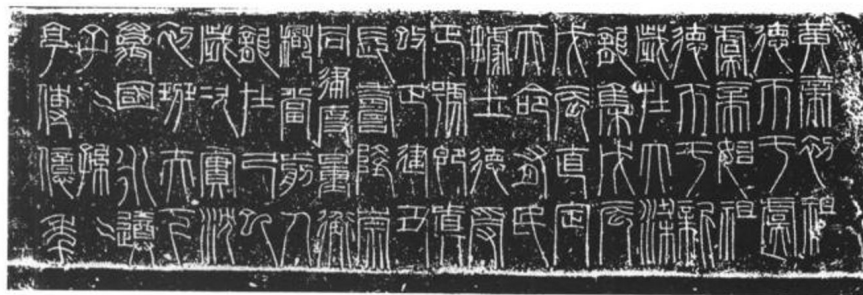 黃帝初祖
德帀于虞
虞帝始祖
德帀于新
歲在大梁
龍集戊辰
戊辰直定
天命有民
據土德受
正號即真
改正建丑
長壽隆崇
同律度量衡
稽當前人
龍在己巳
歲次實沈
初班天下
萬國永遵
子〻孫〻
亨傳億年